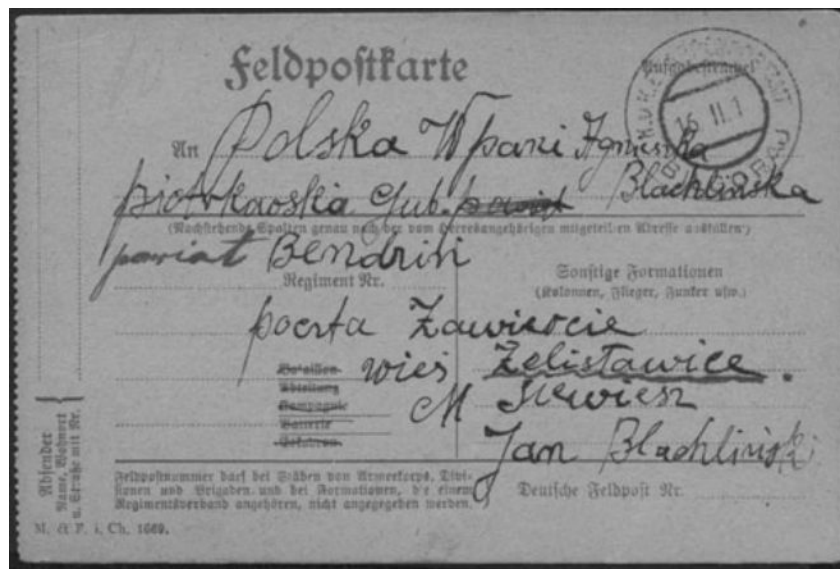 Feldpostkarte
Aufgabestempel
16 II.1
An Polska WPani Agnieszka
piotrkaoskia Gub. powiat Blachlińska
(Nachstehende Spalten genau nach der vom Heeresangehörigen mitgeteilten Adresse ausfüllen)
powiat Bendzin
Regiment Nr.
Sonstige Formationen
(Kolonnen, Flieger, Funker usw.)
pocrta Zawiercie
Bataillon
wieś Żelisławice.
Abteilung
Kompagnie
M Siewierz
Batterie
Eskadron
Jan Blachliński
Absender
Name, Wohnort
u. Straße mit Nr.
Feldpostnummer darf bei Stäben von Armeekorps, Divi-
sionen und Brigaden und bei Formationen, die einem
Regimentsverband angehören, nicht angegeben werden.
Deutsche Feldpost Nr.
M. & P. i. Ch. 1669.